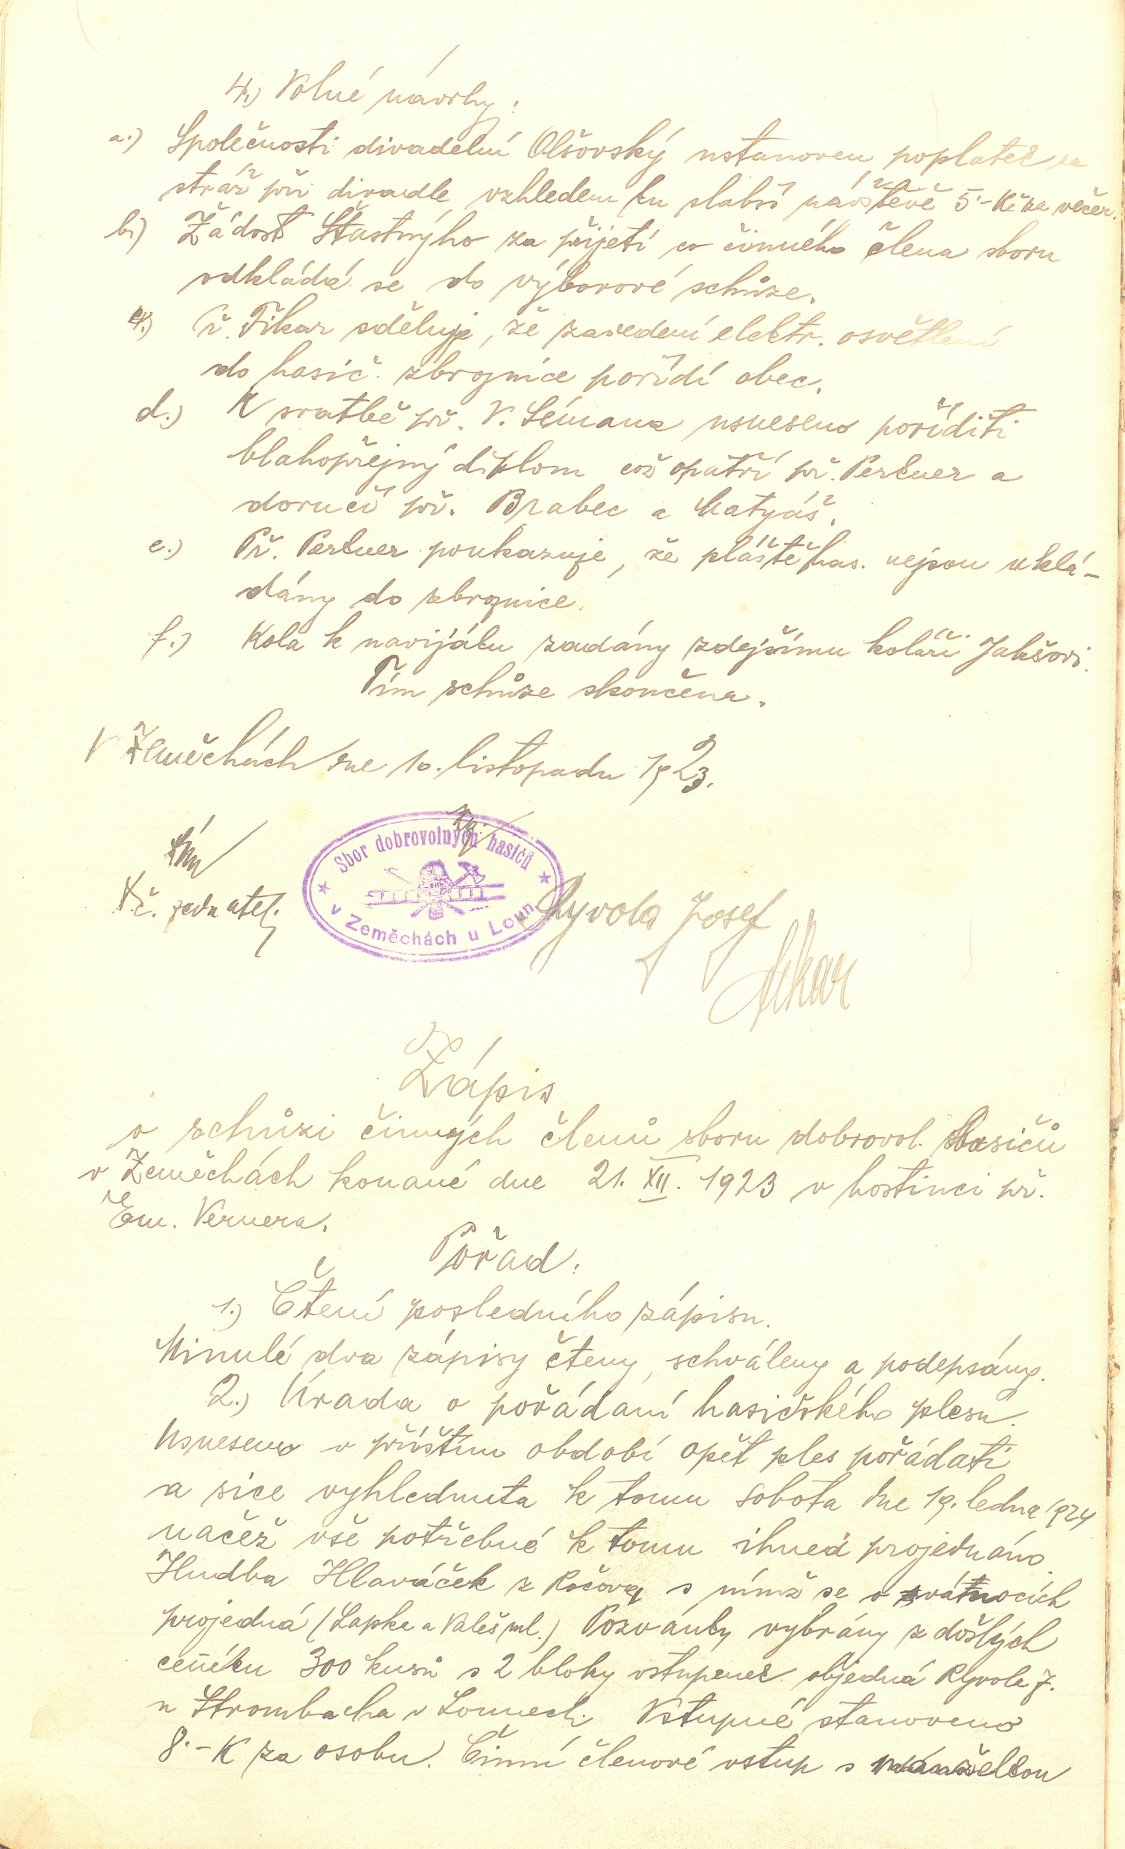 4.) Volné návrhy.
a.) Společnosti divadelní Olšovský ustanoven poplatek za
stráž při divadle vzhledem ku slabší návštěvě 5·- Kč za večer.
b.) Žádost Šťastnýho za přijetí co činného člena sboru
odkládá se do výborové schůze.
c.) Př. Fikar sděluje, že zavedení elektr. osvětlení
do hasič. zbrojnice pořídí obec.
d.) K svatbě př. V. Lémana usneseno poříditi
blahopřejný diplom což opatří př. Perkner a
doručí př. Brabec a Matyáš.
e.) Př. Perkner poukazuje, že pláště has. nejsou uklá-
dány do zbrojnice.
f.) Kola k navijáku zadány zdejšímu koláři Jakšovi.
Tím schůze skončena.
V Žeměchách dne 10. listopadu 1923.
t.č. jednatel.
Sbor dobrovolných hasičů
v Zeměchách u Loun
Ryvola Josef
Fikar
Zápis
o schůzi činných členů sboru dobrovol. hasičů
v Žeměchách konané dne 21. XII. 1923 v hostinci př.
Em. Vernera.
Pořad.
1.) Čtení posledního zápisu.
Minulé dva zápisy čteny, schváleny a podepsány.
2.) Úrada o pořádání hasičského plesu.
Usneseno v příštím období opět ples pořádati
a sice vyhlednuta k tomu sobota dne 19. ledna 1924
načež vše potřebné k tomu ihned projednáno
Hudba Hlaváček z Ročova s nímž se o svátnocích
projedná (Lapka a Valeš ml.) Pozvánky vybrány z došlých
ceníku 300 kusů s 2 bloky vstupenek objedná Ryvola J.
u Strombacha v Lounech. Vstupné stanoveno
8·- K za osobu. Činní členové vstup s manželkou